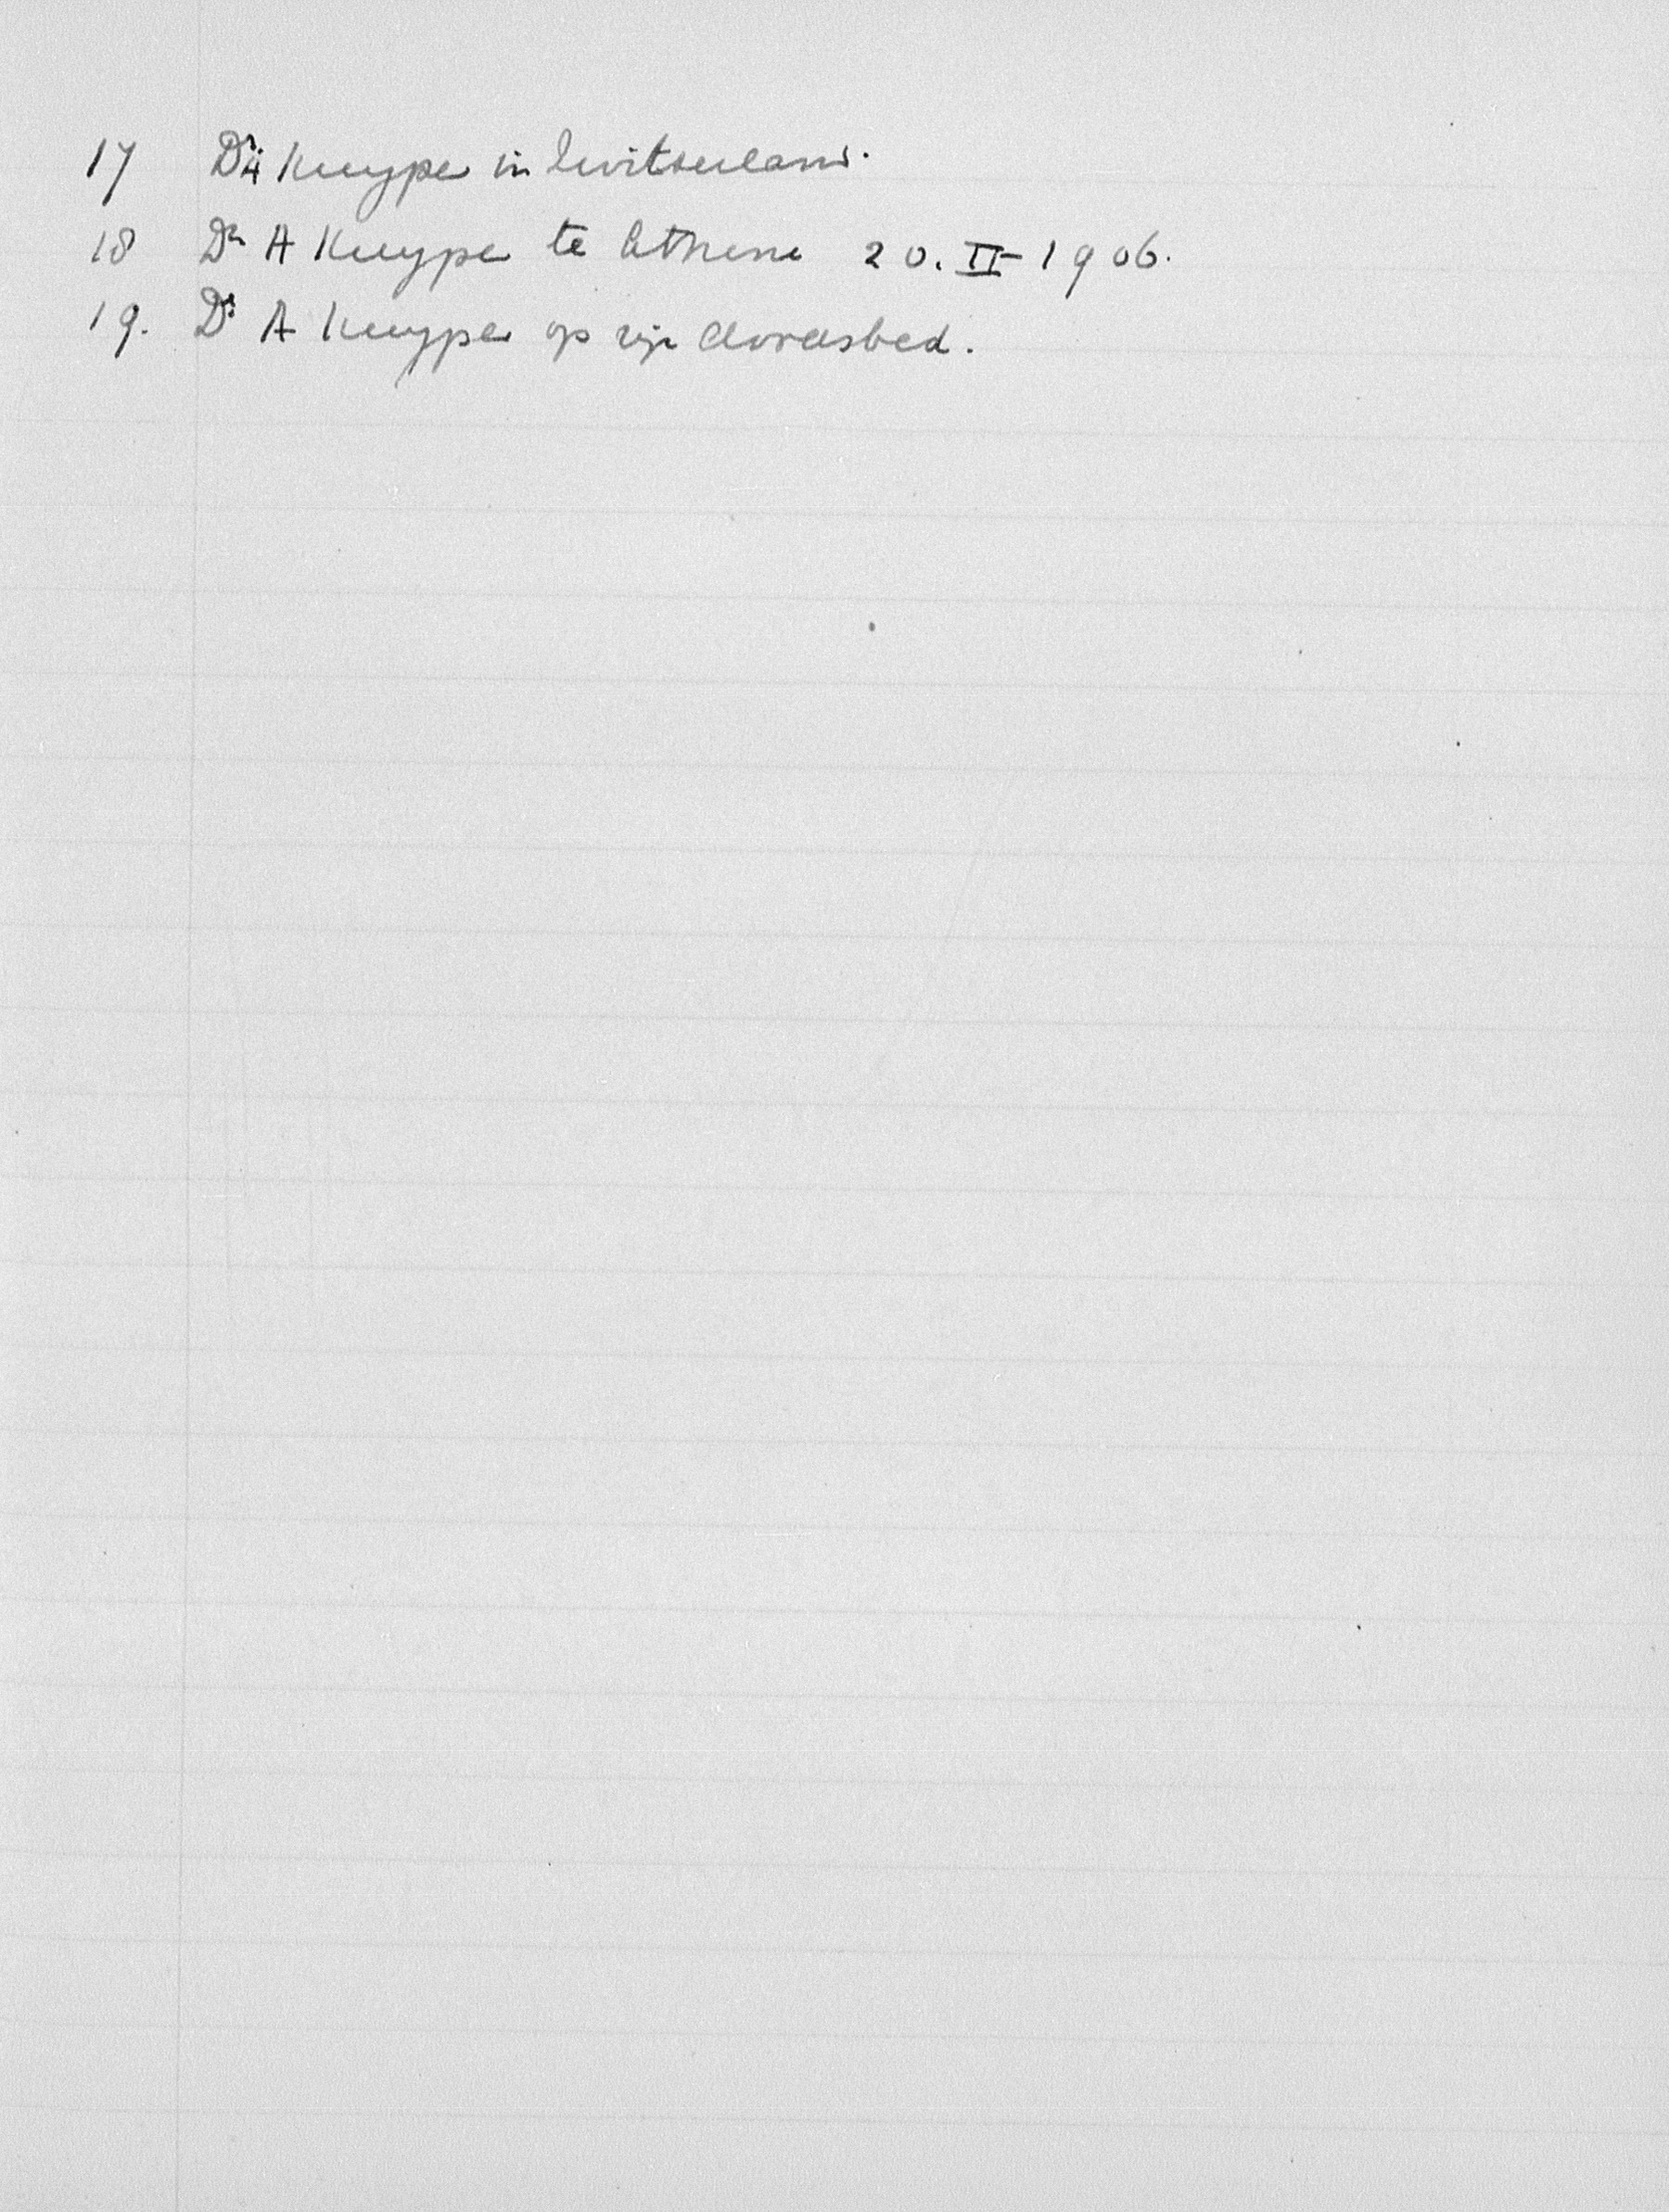 17 Dr A Kuyper in Zwitserland.
18 Dr A Kuyper te Athene 20. II - 1906.
19. Dr A Kuyper op zijn doodsbed.